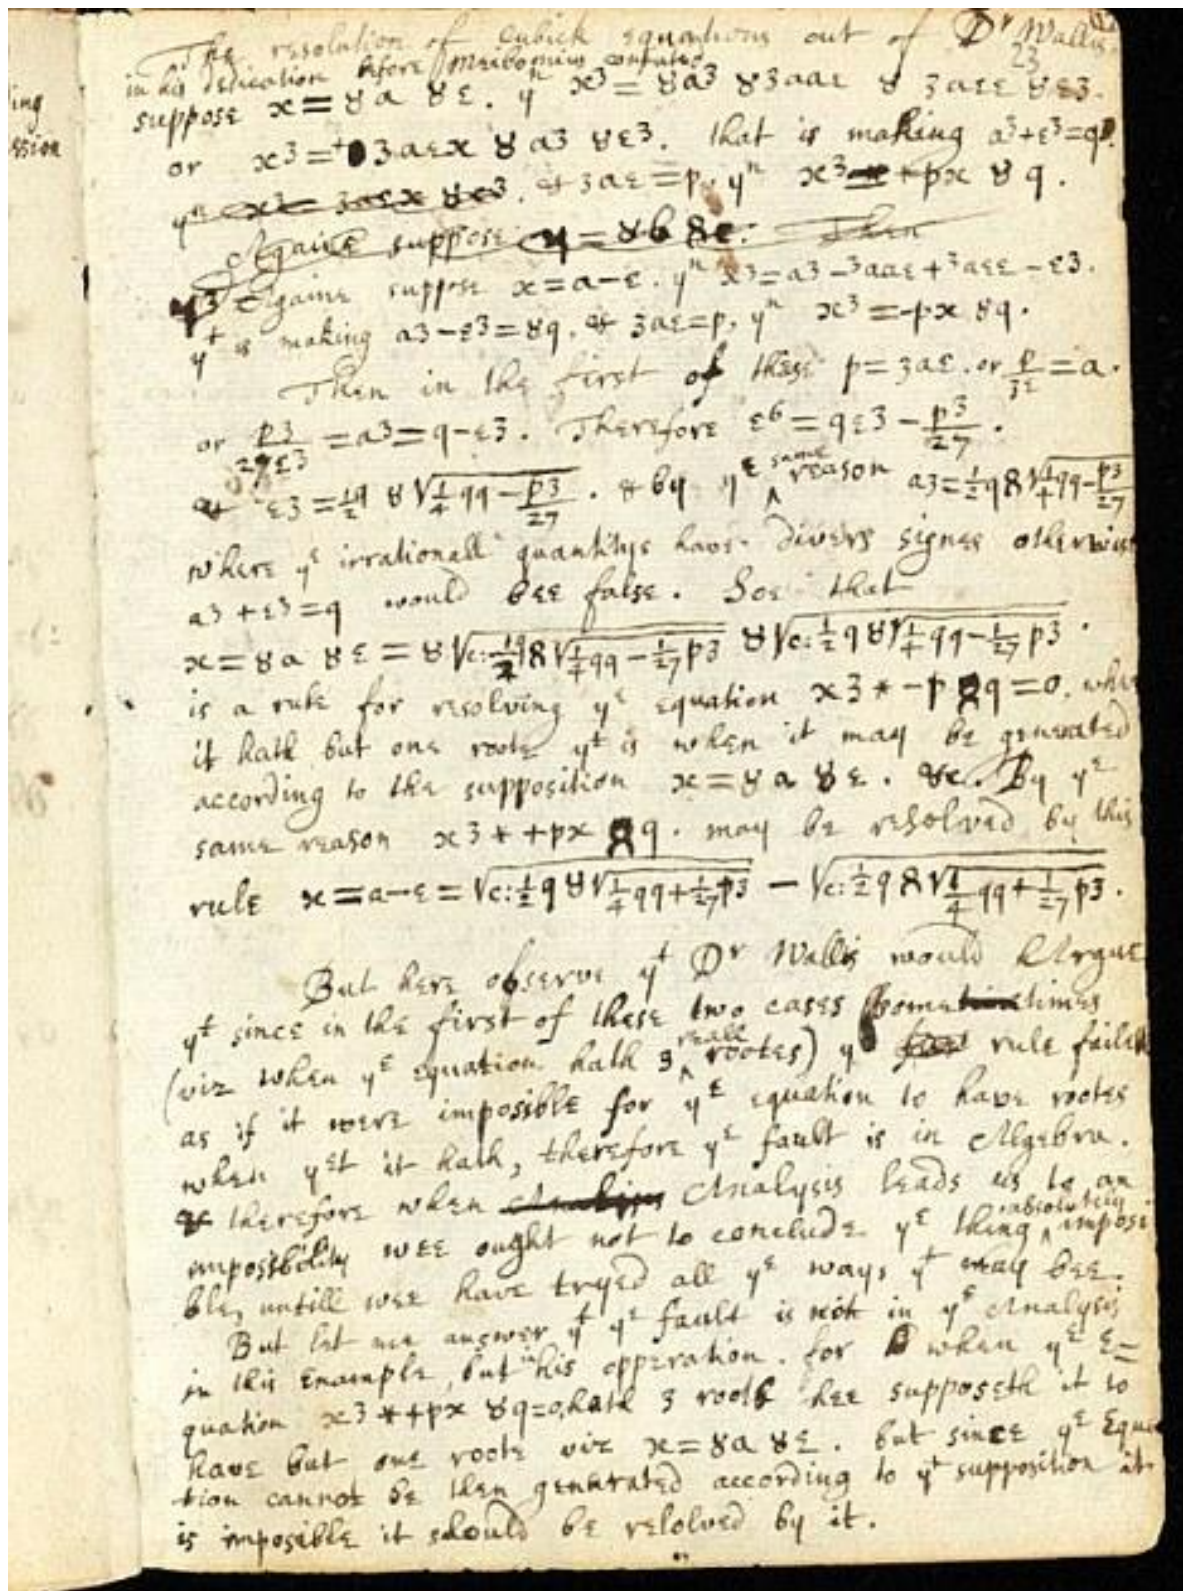 ing
ssion
The resolution of cubick equations out of Dr Wallis
23
in his Dedication before Meibomius confuted
suppose x=8a 8ε. yn x3=8a3 83aaε 8 3aεε 8ε3.
or x3=+3aεx 8 a3 8ε3. that is making a3+ε3=q.
yn x3= 3aεx 8ε3. & 3aε=p, yn x3= +px 8 q.
Againe suppose y=8b 8c: Then
Againe suppose x=a-ε. yn x3=a3-3aaε+3aεε-ε3.
yt is making a3-ε3=8q. & 3aε=p, yn x3=-px 8q.
Then in the first of these p=3aε. or p/3ε=a.
or p3/27ε3=a3=q-ε3. Therefore ε6=qε3-p3/27.
& ε3=1/2q 8√1/4qq-p3/27. & by yE same reason a3=1/2q8√1/4qq-p3/27
where yE irrationall quantitys have divers signes otherwise
a3+ε3=q would bee false. Soe that
x=8a 8ε=8√c:1/2q8√1/4qq-1/27p3 8√c:1/2q8√1/4qq-1/27p3.
is a rule for resolving yE equation x3*-p8q=0. when
it hath but one roote yt is when it may be generated
according to the supposition x=8a 8ε. &c. By yE
same reason x3*+px8q. may be resolved by this
rule x=a-ε=√c:1/2q8√1/4qq+1/27p3 - √c:1/2q8√1/4qq+1/27p3.
But here observe yt Dr Wallis would Argue
yt since in the first of these two cases sometimes
(viz when yE equation hath 3 reall rootes) yE rule faileth
as if it were imposible for yE equation to have rootes
when yet it hath, therefore yE fault is in Algebra.
& therefore when Analysis Analysis leads us to an
impossbility wee ought not to conclude yE thing absolutely imposi
ble, untill wee have tryed all yE ways yt may bee.
But let me answer yt yE fault is not in yE Analysis
in this Example, but in his opperation. for when yE E=
quation x3*+px 8q=0, hath 3 roots hee supposeth it to
have but one roote viz x=8a 8ε. but since yE Equa
tion cannot be then generated according to yt supposition it
is imposible it should be resolved by it.